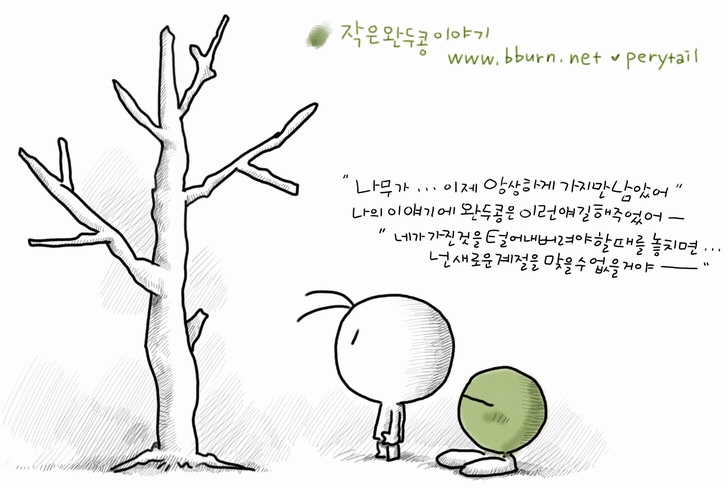 작은완두콩이야기
www.bburn.net ♥ perytail
"나무가 ... 이제 앙상하게 가지만남았어"
나의이얘기에 완두콩은 이런얘길해주었어 —
"네가가진것을 털어내버려야할때를 놓치면 ...
넌새로운계절을 맞을수없을거야 ——"